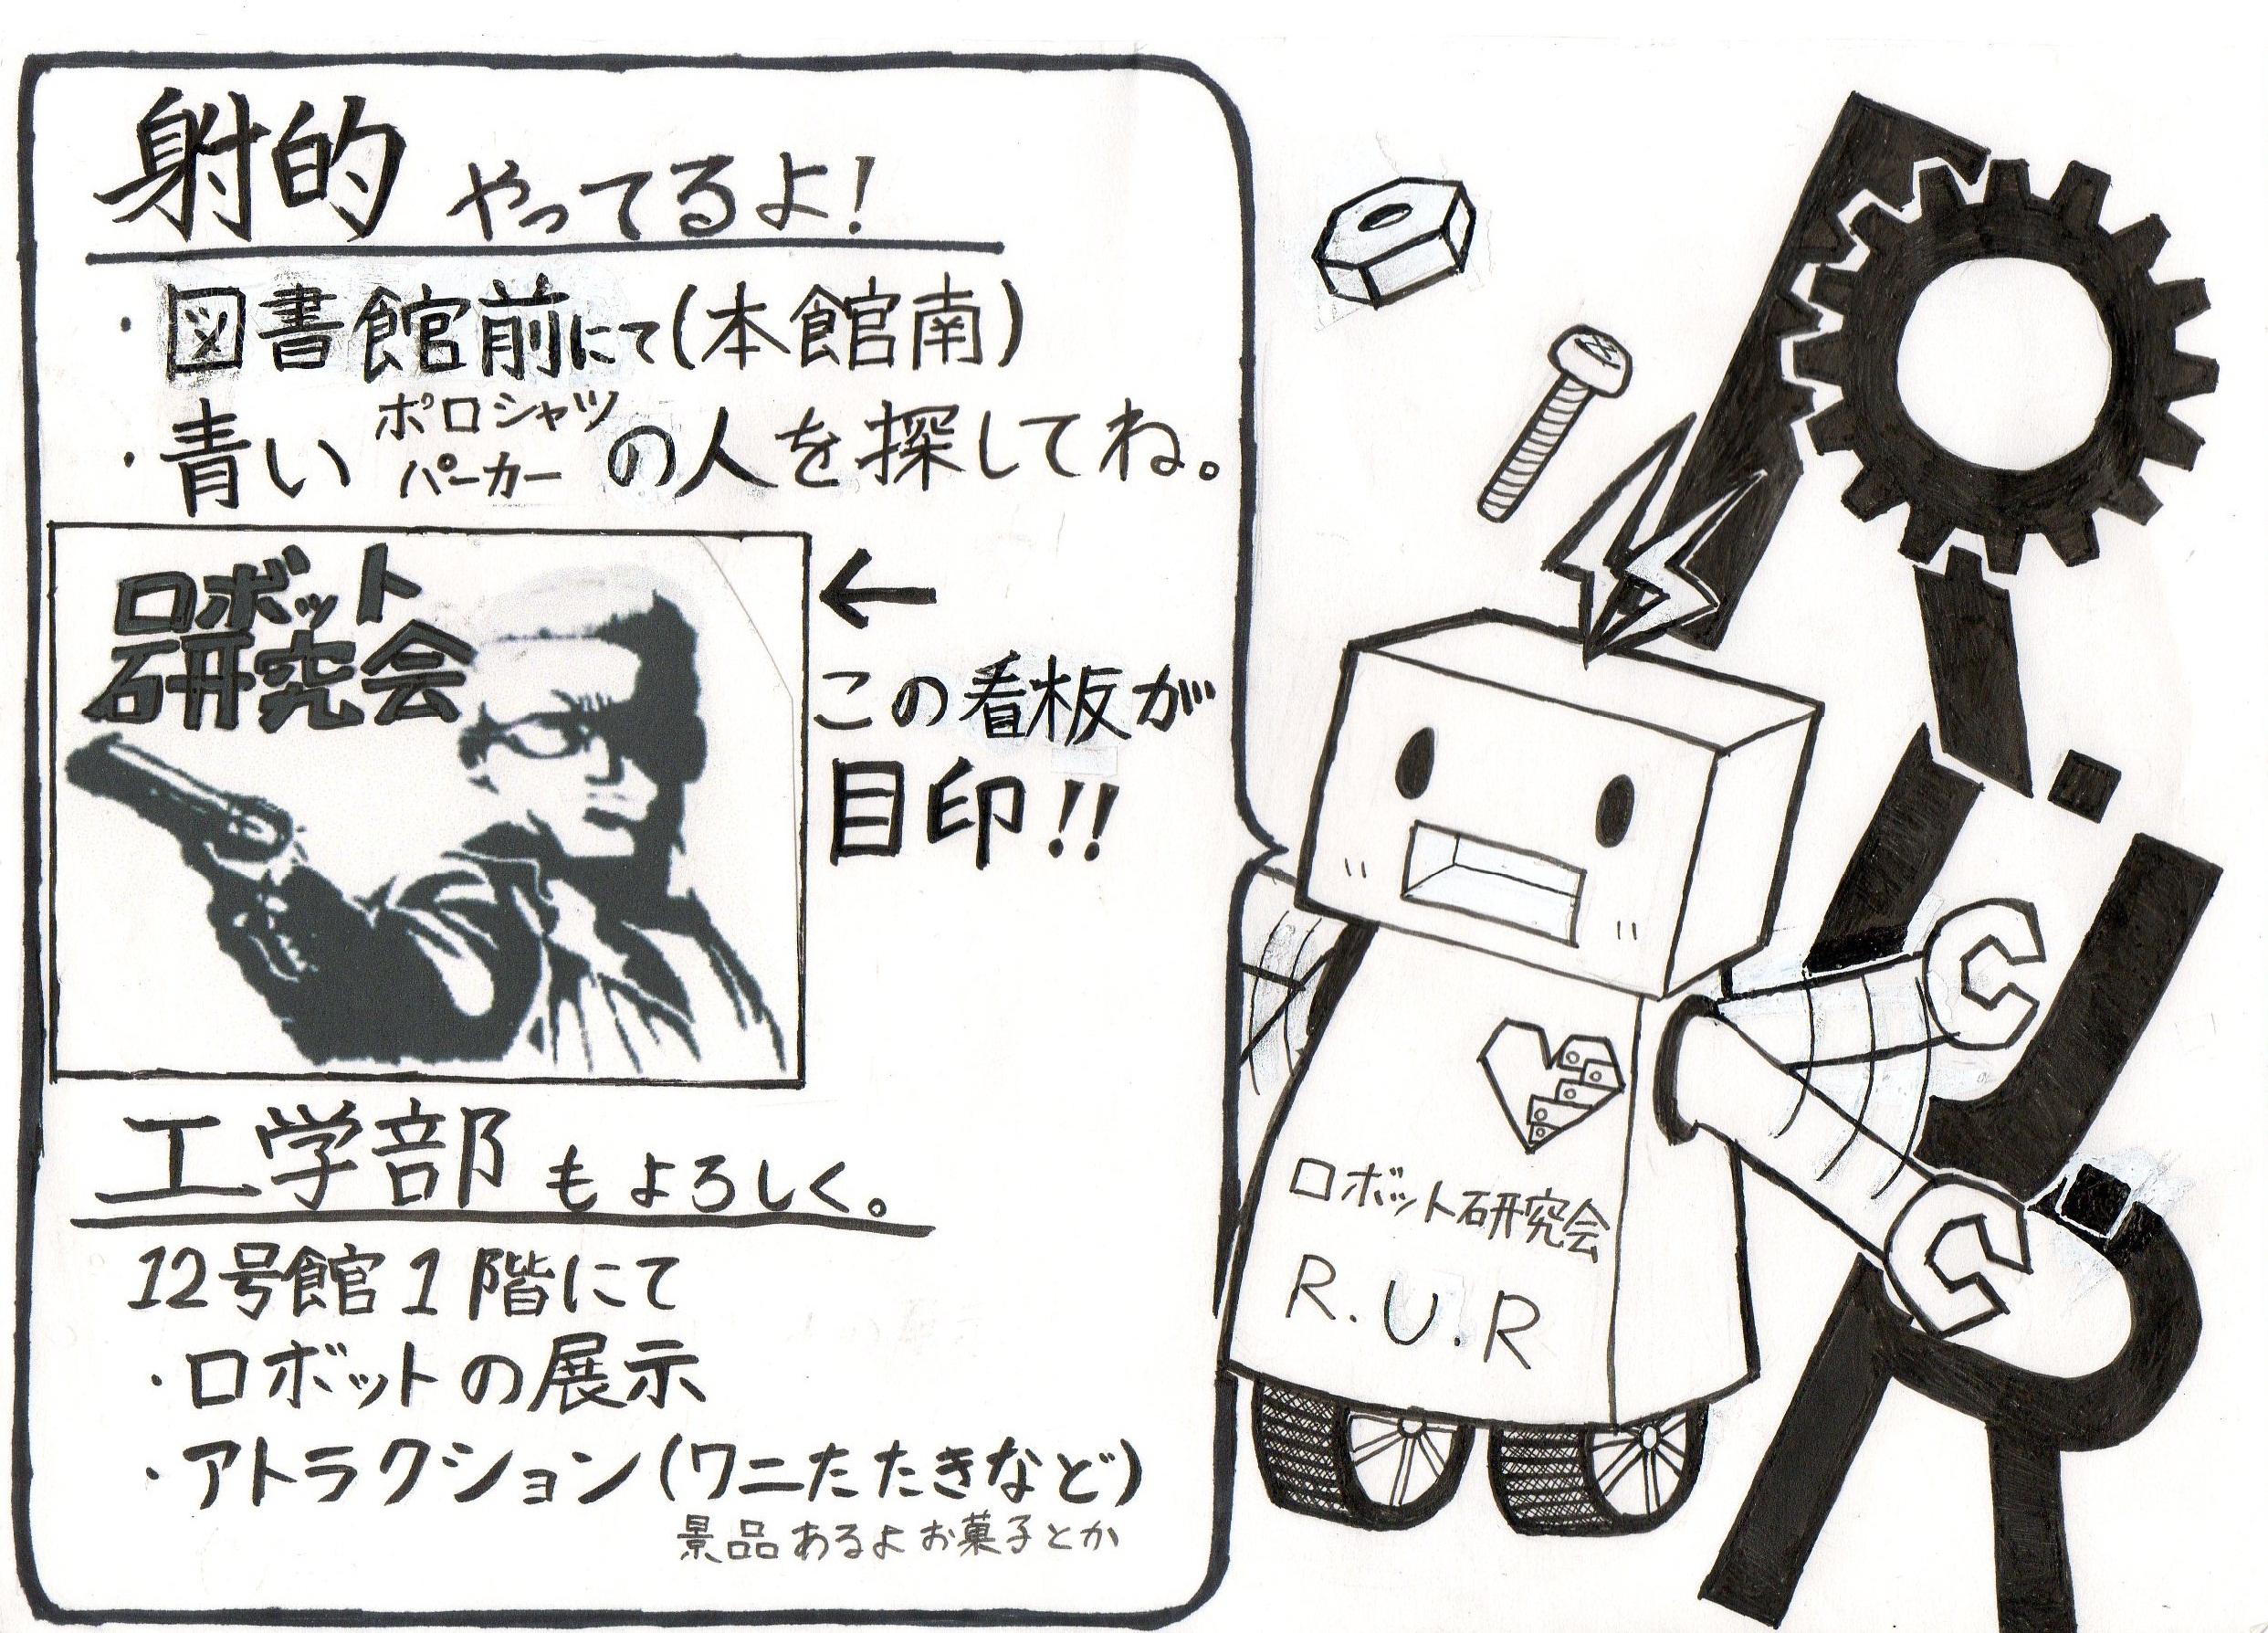 射的 やってるよ!
・図書館前にて(本館南)
・青い ポロシャツ パーカー の人を探してね。
ロボット
研究会
←
この看板が
目印!!
工学部 もよろしく。
12号館1階にて
・ロボットの展示
・アトラクション(ワニたたきなど)
景品あるよ お菓子とか
ロボット研究会
R.U.R
R.U.R